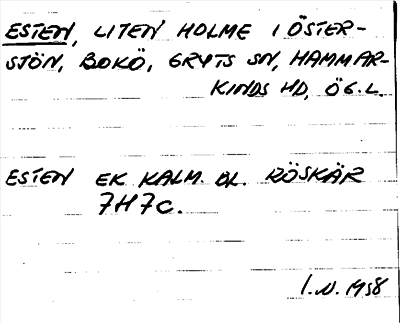 ESTEN, LITEN HOLME I ÖSTER-
STÖN, BOKÖ, GRYTS SN, HAMMAR-
KINDS HD, ÖG.L.
ESTEN EK KALM. BL. RÖSKÄR
7H7C.
I.N. 1958